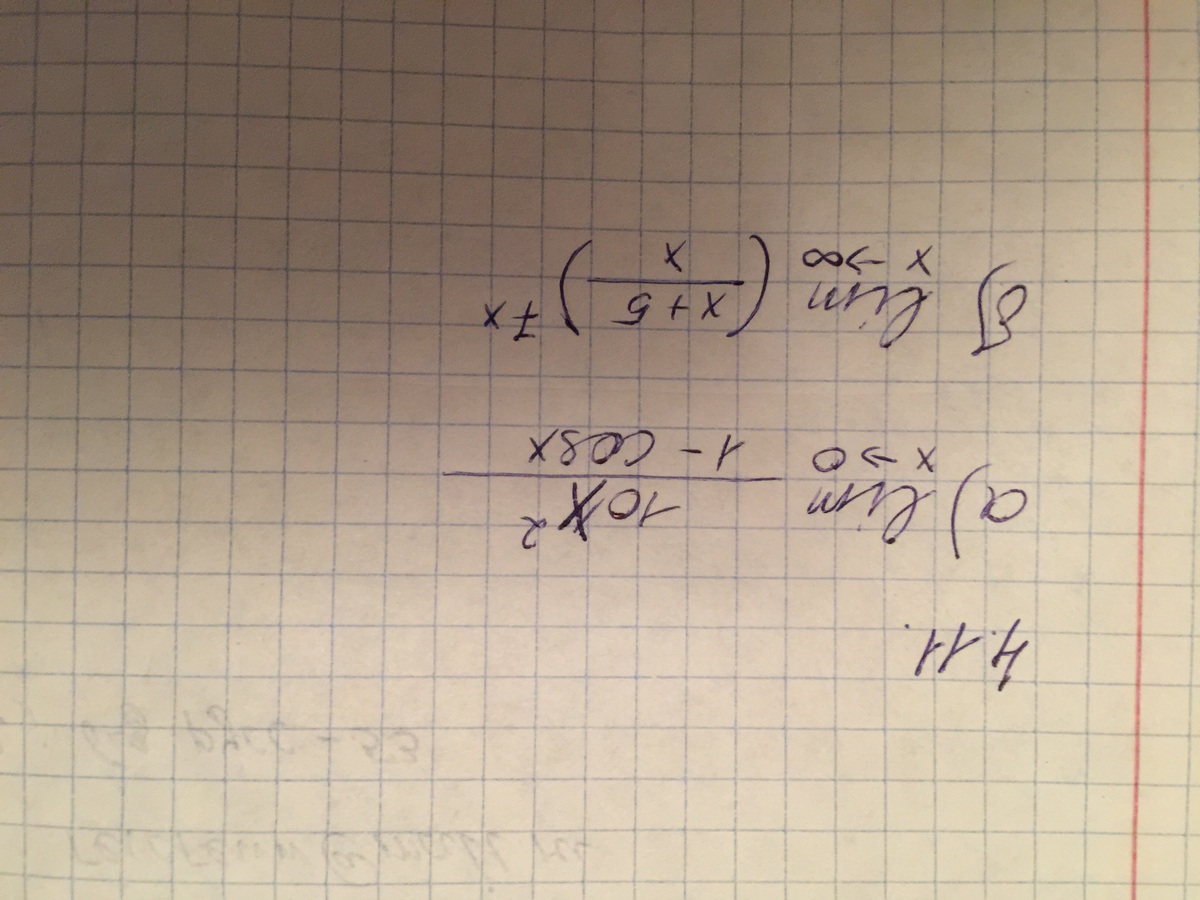 4.11.
а) lim x→0 10x² / 1 - cosx
б) lim x→∞ (x+5 / x)^7x